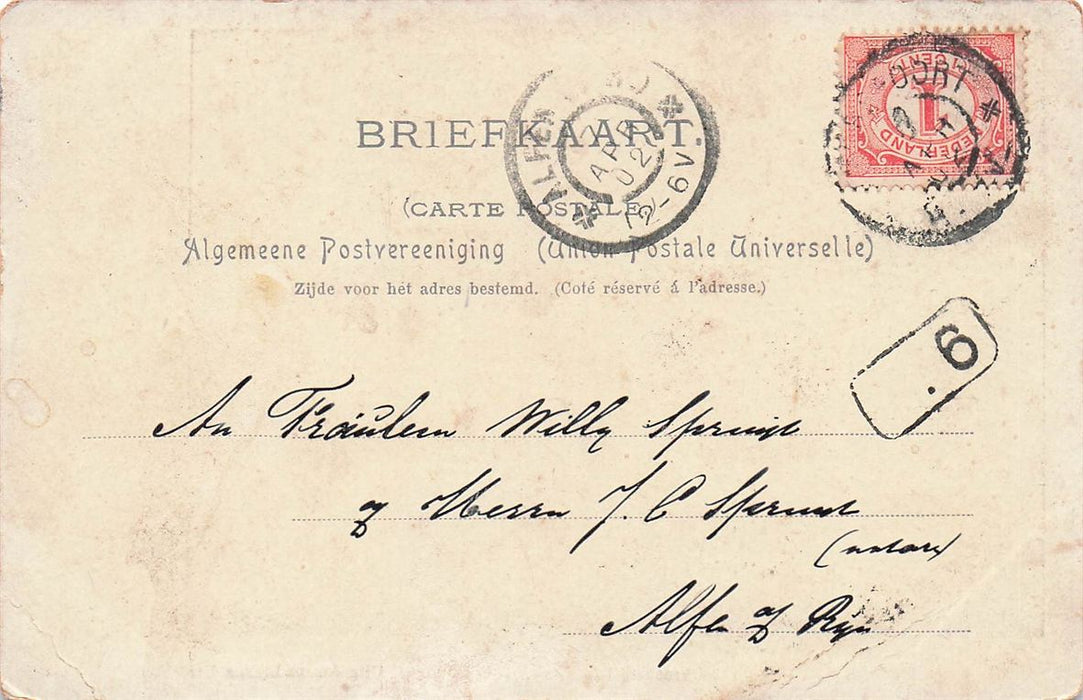 BRIEFKAART.
(CARTE POSTALE)
Algemeene Postvereeniging (Union Postale Universelle)
Zijde voor hét adres bestemd. (Coté réservé á l'adresse.)
ALFEN
2 APR 02
12-6V
OORT
CENT
1
NEDERLAND
. 6
An Fräulein Willy Spruijt
Herrn J. C Spruijt
(notaris)
Alfen a/d Ryn